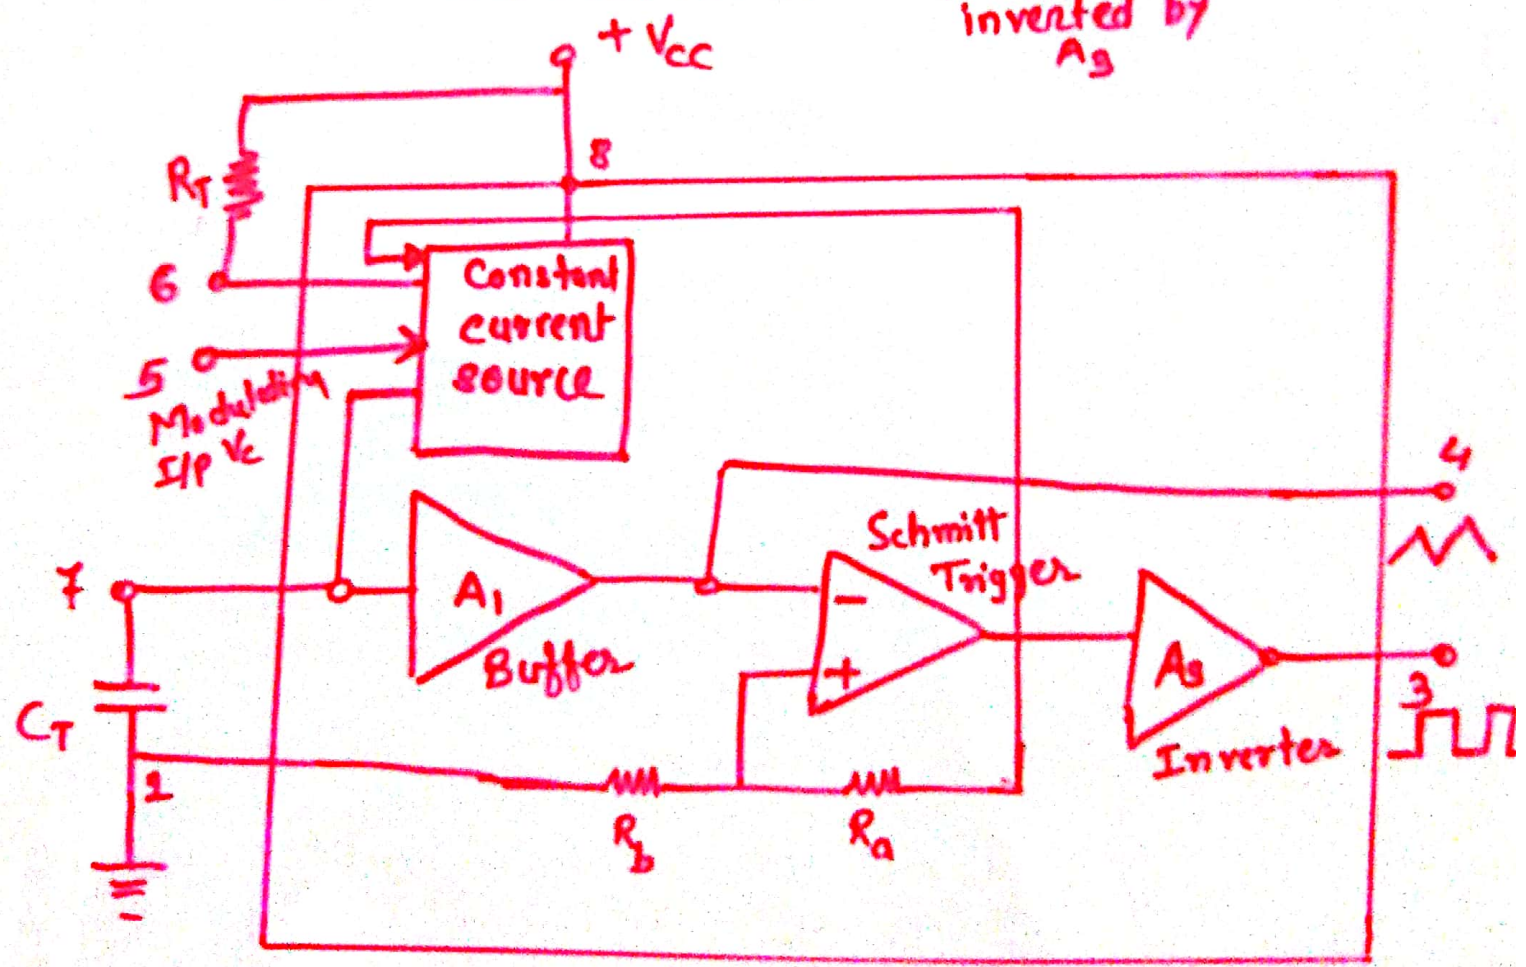 inverted by
A3
+ Vcc
8
RT
6
Constant
current
source
5
Modulating
I/P Vc
4
Schmitt
Trigger
7
A1
Buffer
−
+
A3
3
Inverter
CT
1
Rb
Ra